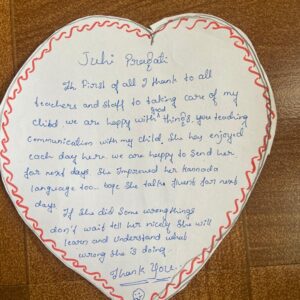 Juhi Pragati
Th First of all I thank to all
teachers and staff to taking care of my
child we are happy with good things, you teaching
communication with my child, She has enjoyed
each day here. we are happy to Send her
for next days She Improved her kannada
language too.. hope She talks fluent for next
days
If She did Some wrong things
don't wait tell her nicely She will
learn and understand what
wrong She is doing
Thank You.